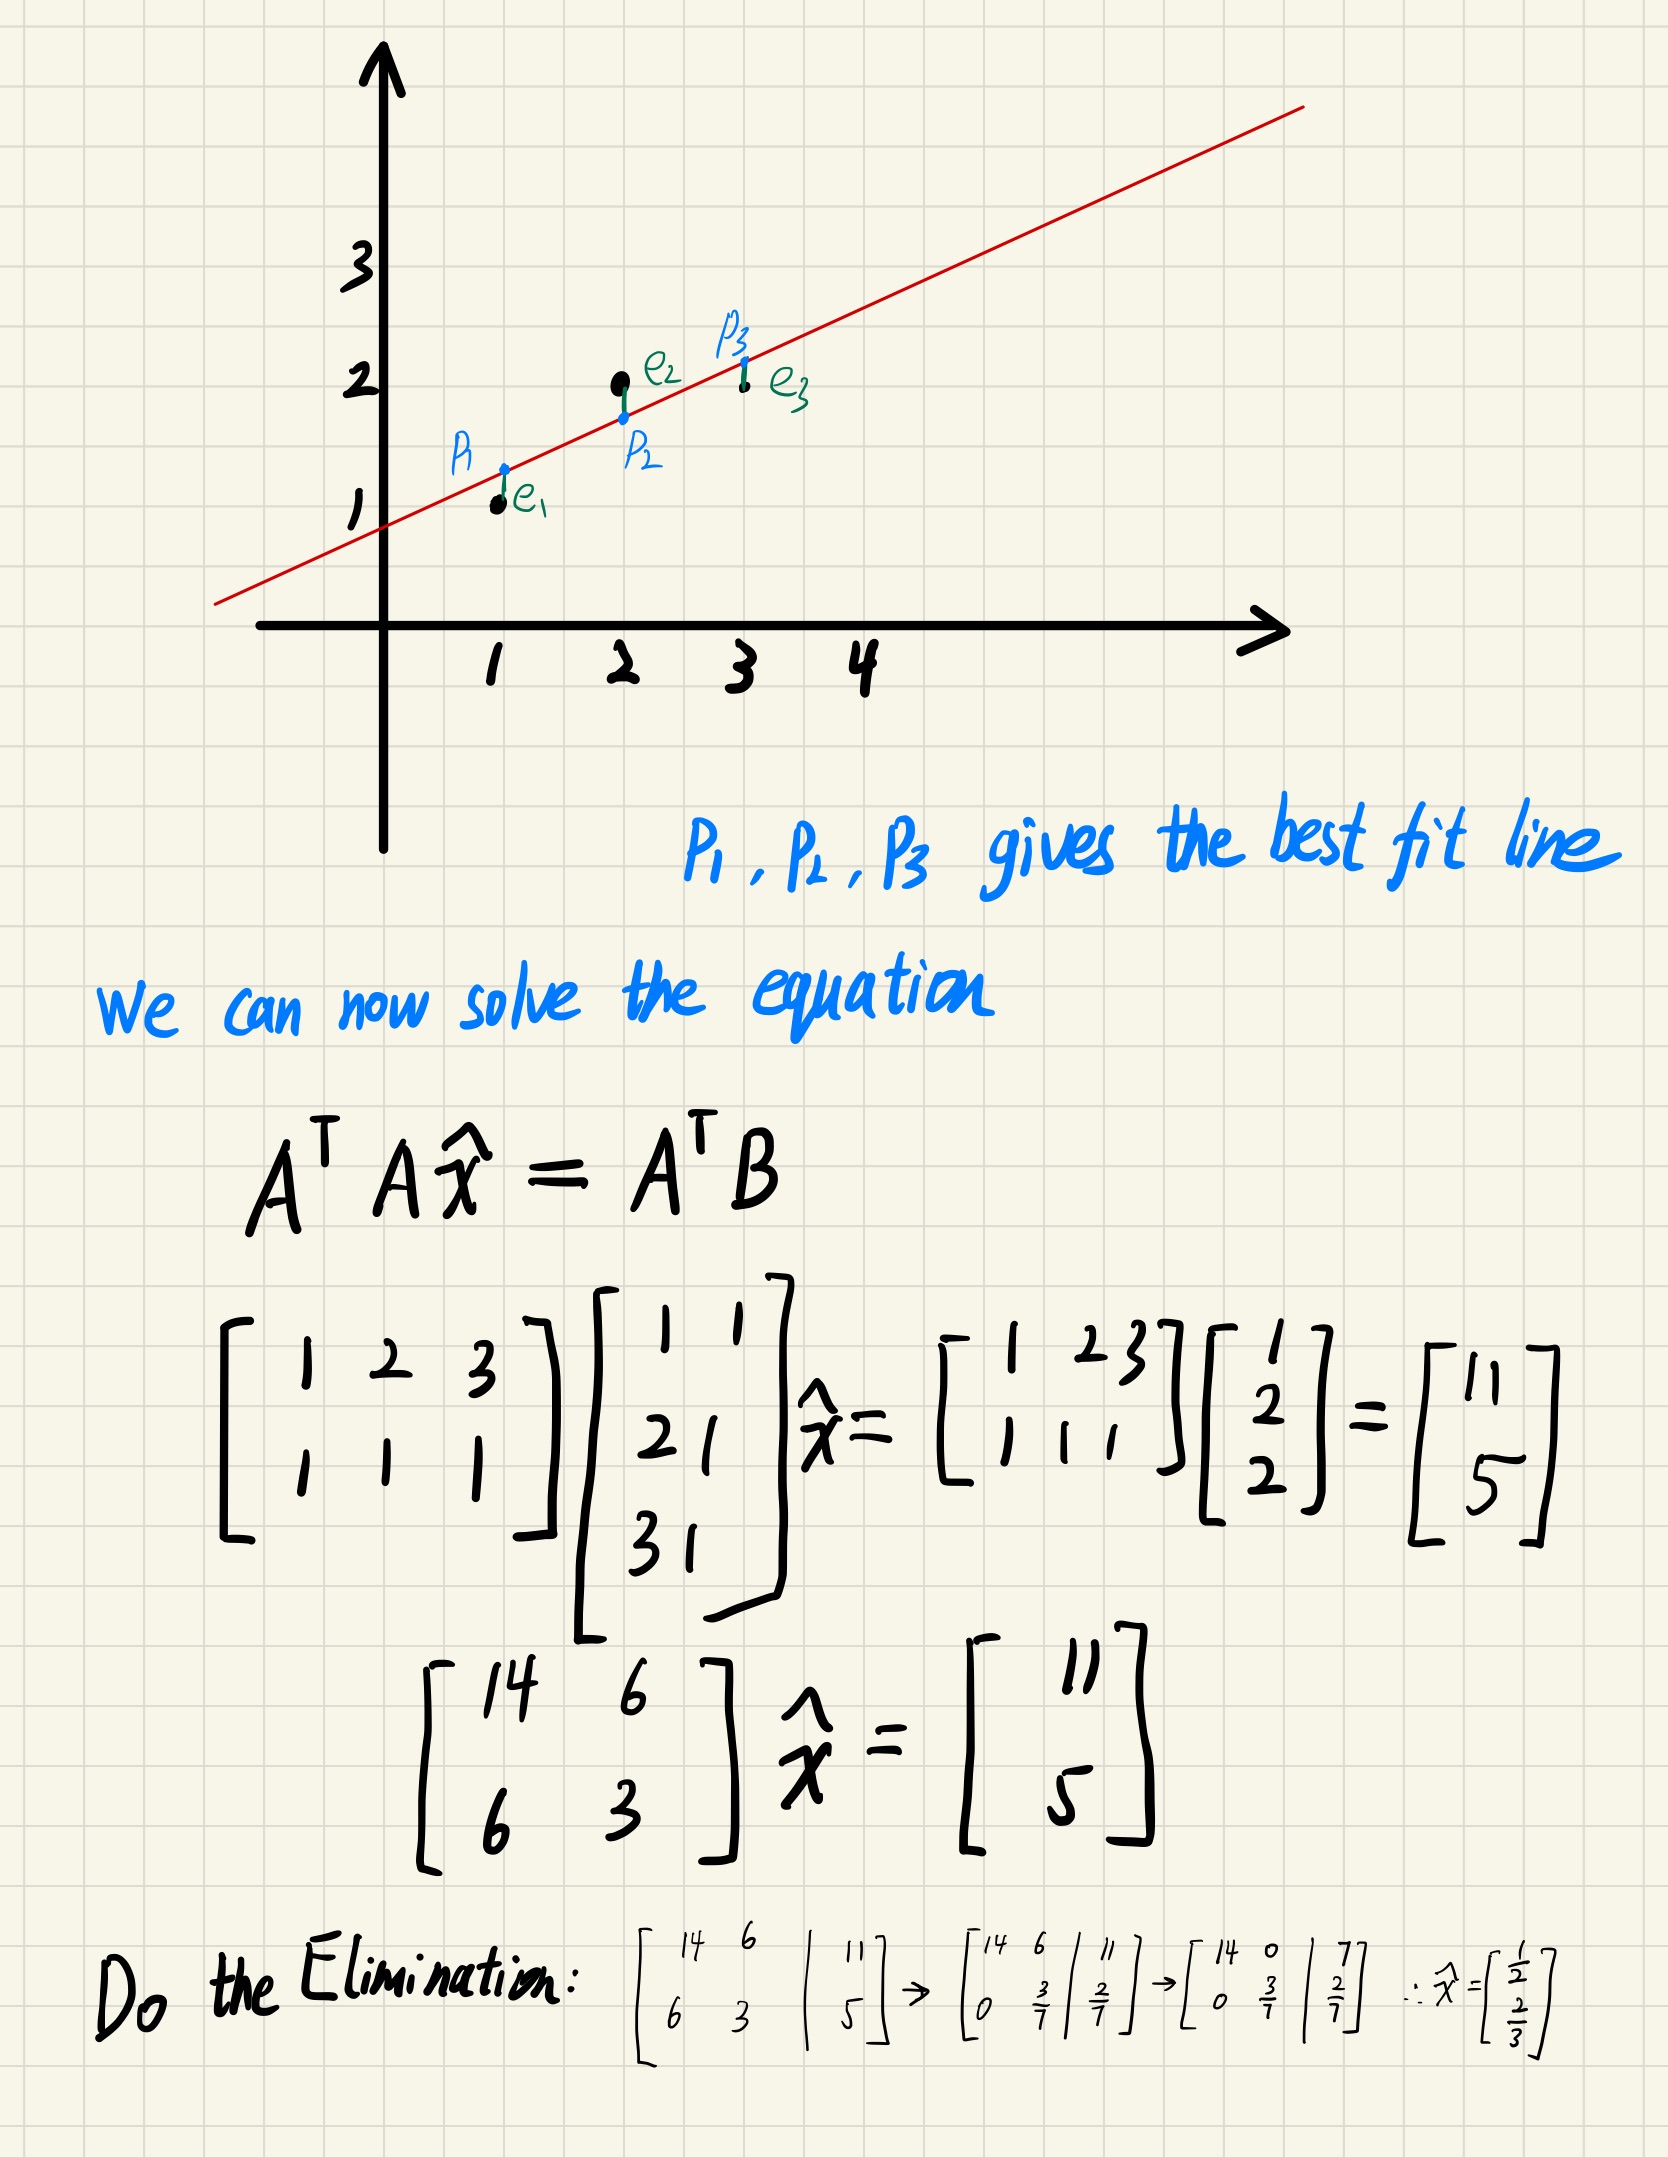 3
P3
2
e2
e3
P1
P2
1
e1
1 2 3 4
P1, P2, P3 gives the best fit line
we can now solve the equation
Aᵀ A x̂ = Aᵀ B
[1 2 3; 1 1 1] [1 1; 2 1; 3 1] x̂ = [1 2 3; 1 1 1] [1; 2; 2] = [11; 5]
[14 6; 6 3] x̂ = [11; 5]
Do the Elimination: [14 6 | 11; 6 3 | 5] → [14 6 | 11; 0 3/7 | 2/7] → [14 0 | 7; 0 3/7 | 2/7] ∴ x̂ = [1/2; 2/3]